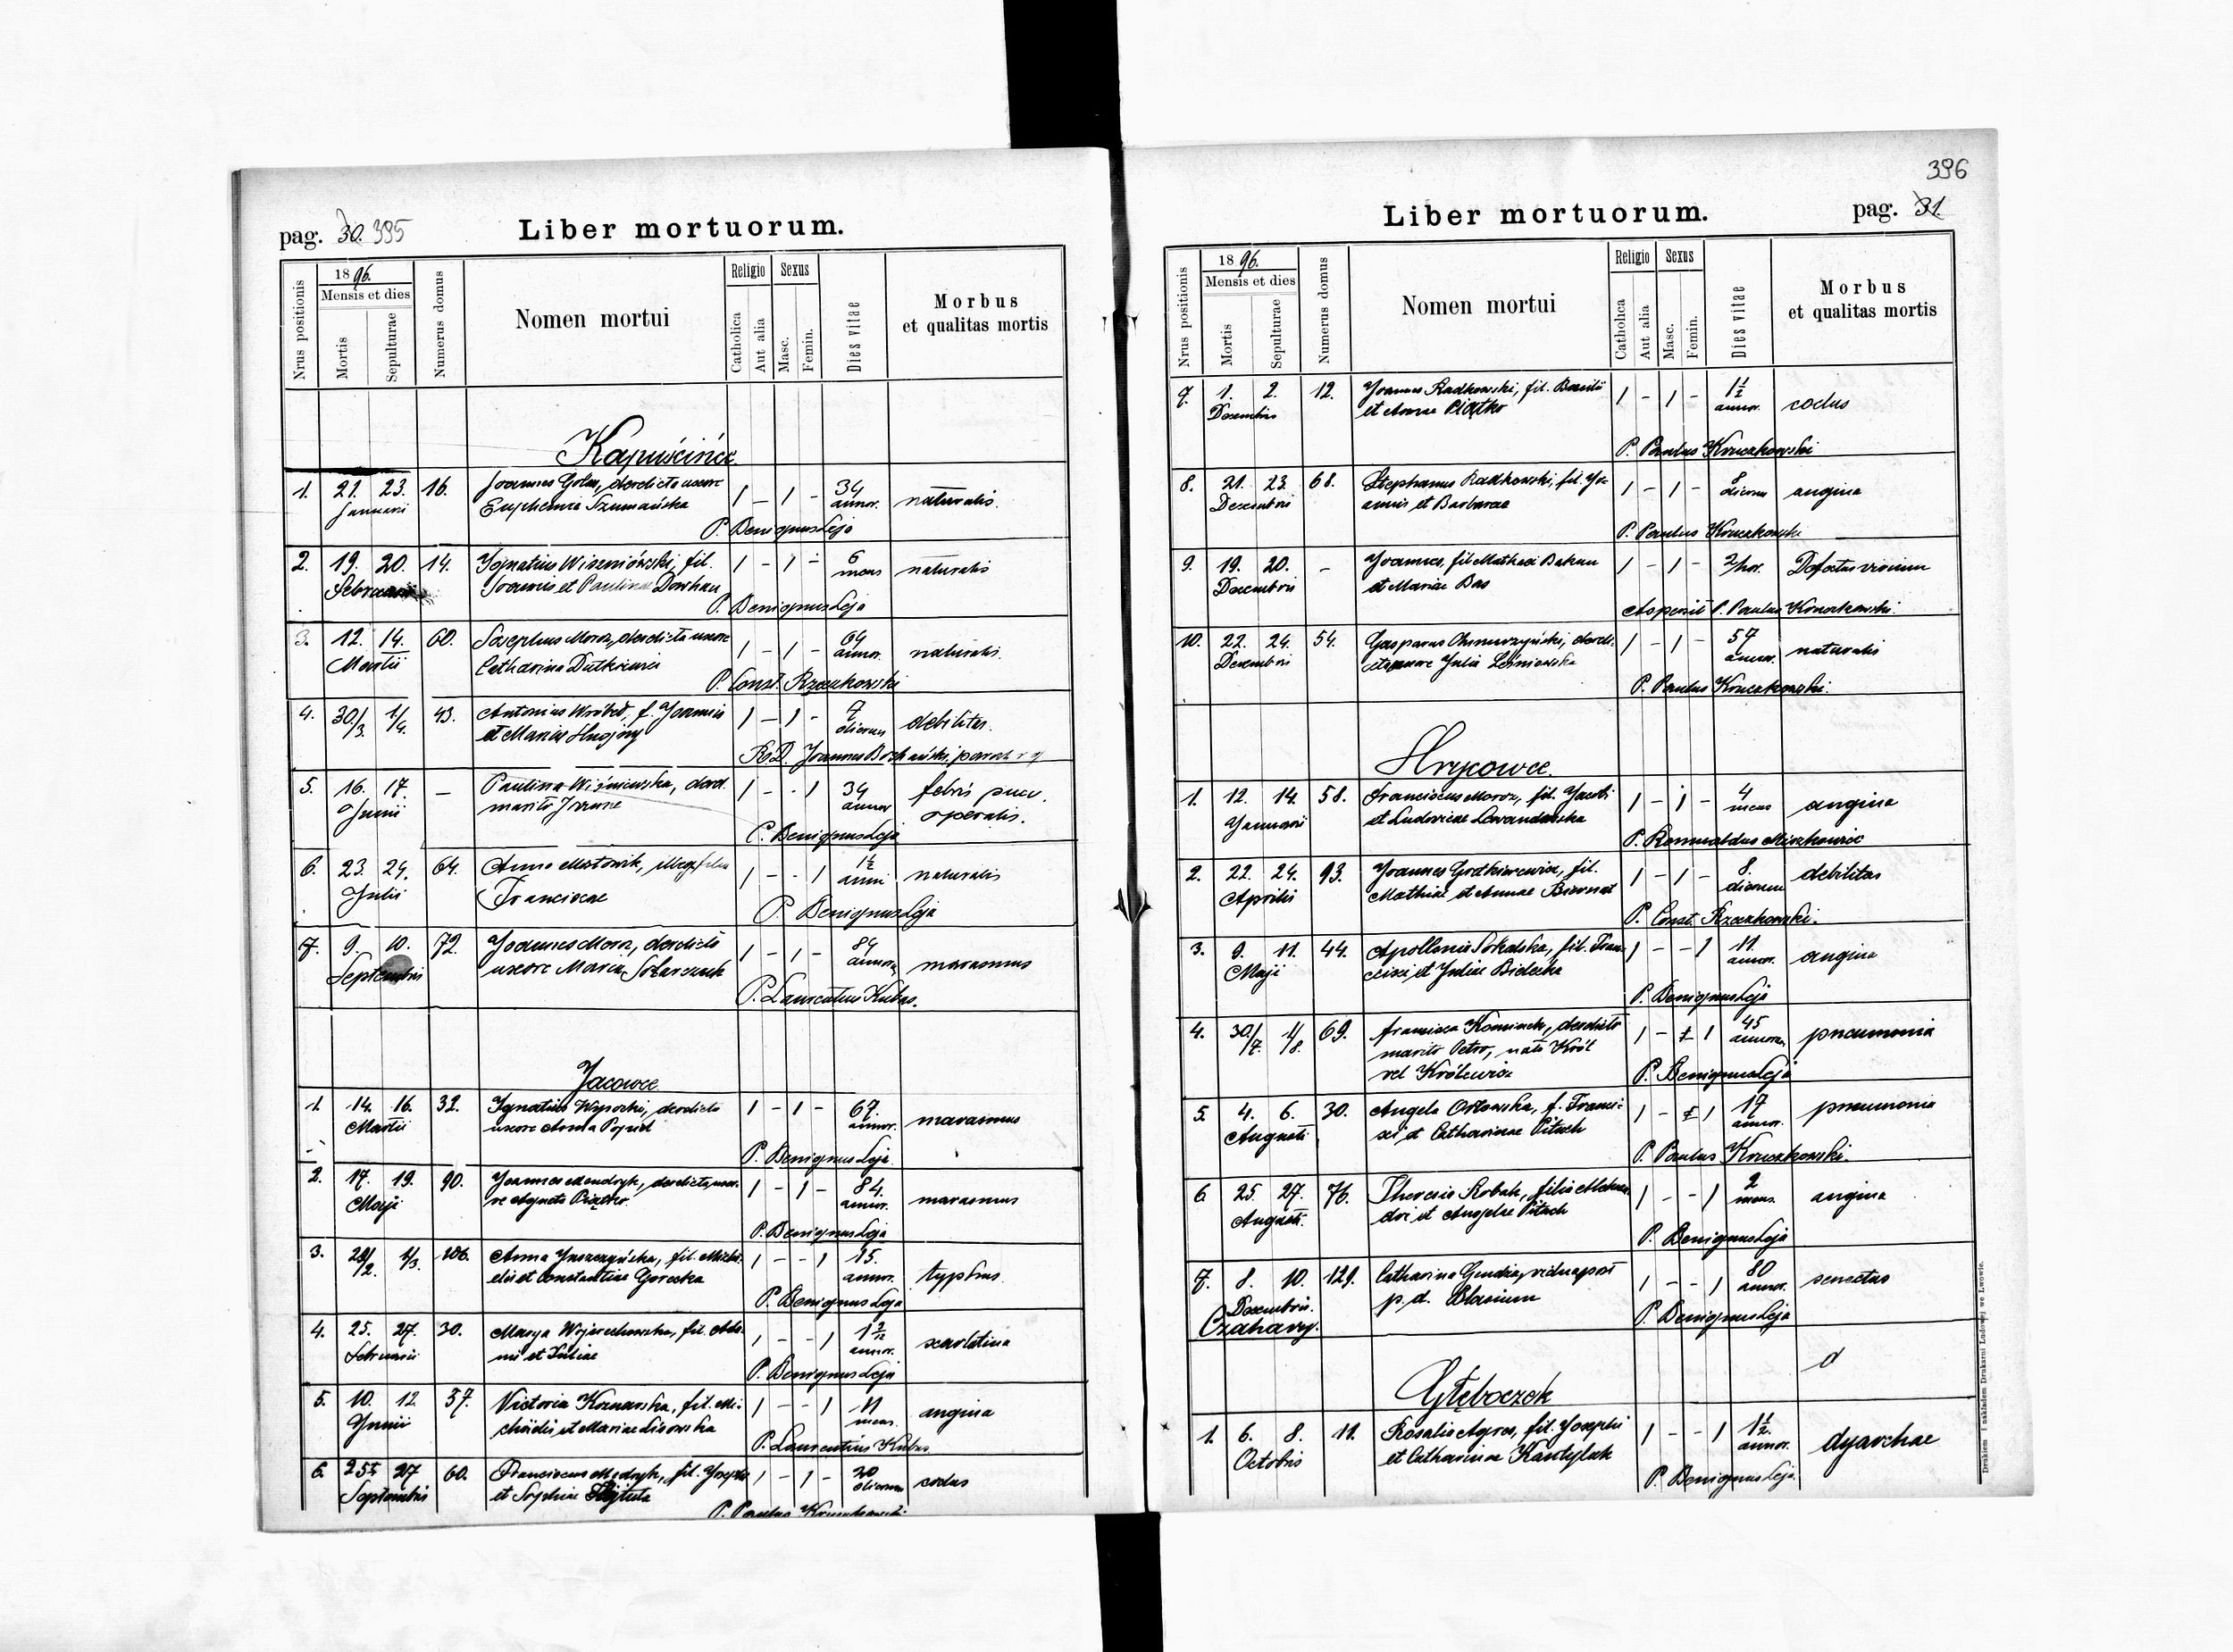 pag. 30. 395
Liber mortuorum.
Nrus positionis
1896.
Mensis et dies
Mortis
Sepulturae
Numerus domus
Nomen mortui
Religio
Catholica
Aut alia
Sexus
Masc.
Femin.
Dies vitae
Morbus
et qualitas mortis
Kapuścińce
1. 21. 23. 16. Joannes Golas, derelicta uxore 1 – 1 – 34
Januarii Euphemia Szumańska annor. naturalis.
P. Benignus Leja
2. 19. 20. 14. Ignatius Wiszniowski, fil. 1 – 1 – 6
Februarii Joannis et Paulinae Dowhan mens naturalis
P. Benignus Leja
3. 12. 14. 60. Josephus Moroz, derelicta uxore 1 – 1 – 64
Martii Catharina Dutkiewicz annor. naturalis.
P. Const. Rzeczkowski
4. 30/3. 1/4. 43. Antonius Wróbel, f. Joannis 1 – 1 – 7
et Mariae dierum debilitas.
R.D. Joannes
5. 16. 17. – Paulina Wiśniewska, derel. 1 – – 1 34 febris puer.
Junii marito Joanne annor operalis.
P. Benignus Leja
6. 23. 24. 64. Anna illeg. filia 1 – – 1 1½
Julii Franciscae anni naturalis
P. Benignus Leja
7. 9. 10. 72. Joannes Moroz, derelicta 1 – 1 – 84
Septembris uxore Maria annor. marasmus
P. Laurentius Kubas.
Jacowce
1. 14. 16. 32. Ignatius Wysocki, derelicta 1 – 1 – 67.
Martii uxore Anna annor. marasmus
P. Benignus Leja
2. 17. 19. 90. Joannes Mendryk, derelicta uxo-
Maji re Agneta Piątko 1 – 1 – 84. annor. marasmus
P. Benignus Leja
3. 28/2. 1/3. 106. Anna Juszczyńska, fil. Micha-
elis et Constantiae Gorecka 1 – – 1 15. annor. typhus.
P. Benignus Leja
4. 25. 27. 30. Marya Wojciechowska, fil. Ada-
Februarii mi et Juliae 1 – – 1 annor. scarlatina
P. Benignus Leja
5. 10. 12. 37. Victoria fil. Mi-
Junii chaëlis et Mariae Lisowska 1 – – 1 11 mens. angina
P. Laurentius Kubas
6. 25. 27 60. Franciscus Mędryk, fil. Josephi 1 – 1 – 20
Septembris et Sophiae dierum
P. Paulus Kruczkowski
396
Liber mortuorum.
pag. 31.
Nrus positionis
1896.
Mensis et dies
Mortis
Sepulturae
Numerus domus
Nomen mortui
Religio
Catholica
Aut alia
Sexus
Masc.
Femin.
Dies vitae
Morbus
et qualitas mortis
7. 1. 2. 12. Joannes Radkowski, fil. Basilii 1 – 1 – 1½
Decembris et Annae Piątko annor.
P. Paulus Kruczkowski
8. 21. 23. 68. Stephanus Radkowski, fil. Jo-
Decembris annis et Barbarae 1 – 1 – 8 dierum angina
P. Paulus Kruczkowski
9. 19. 20. – Joannes, fil. Mathaei 1 – 1 – 2/hor. Defectus virium
Decembris et Mariae Bas
P. Paulus Kruczkowski.
10. 22. 24. 54. Gasparus Chmurzyński, dereli-
Decembris cta uxore Julia Leśniowska 1 – 1 – 57 annor. naturalis
P. Paulus Kruczkowski.
Hrycowce.
1. 12. 14. 58. Franciscus Moroz, fil. Jacobi 1 – 1 – 4
Januarii et Ludovicae Lewandowska mens angina
P. Romualdus Mieszkowicz
2. 22. 24. 93. Joannes Grotkiewicz, fil. 1 – 1 – 8.
Aprilis Mathiae et Annae Biernat dierum debilitas
P. Const. Rzeczkowski.
3. 9. 11. 44. Apollonia Sokalska, fil. Fran-
Maji cisci et Juliae Bielecka 1 – – 1 11. annor. angina
P. Benignus Leja
4. 30/7. 1/8. 69. Francisca derelicto 1 – 1 45
marito Petro, nata Król annorum pneumonia
vel Królewicz
P. Benignus Leja
5. 4. 6. 30. Angela Orłowska, f. Franci-
Augusti sci et Catharinae Pitach 1 – 1 17 annor. pneumonia
P. Paulus Kruczkowski.
6. 25. 27. 76. Theresia Robak, filia Alexan-
Augusti. dri et Angelae Pitach 1 – – 1 2 mens. angina
P. Benignus Leja
7. 8. 10. 129. Catharina Gendza, vidua post 1 – – 1 80
Decembris. p. d. Blasium annor. senectus
Czahary.
P. Benignus Leja
Głęboczek
1. 6. 8. 11. Rosalia Agres, fil. Josephi 1 – – 1 1½
Octobris et Catharinae annor. dyarrhae
P. Benignus Leja.
Drukiem i nakładem Drukarni Ludowej we Lwowie.